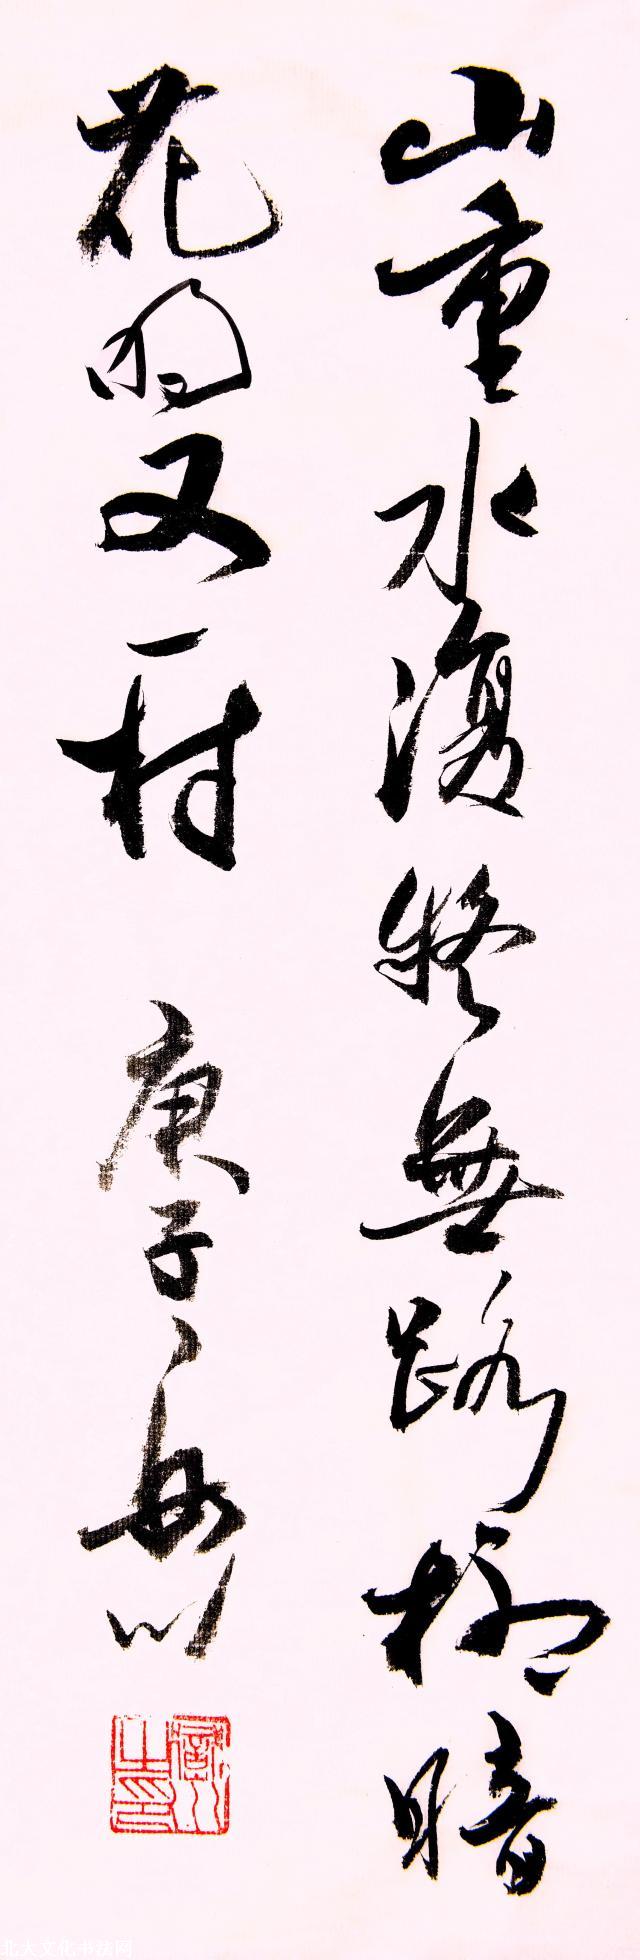 山重水復疑無路柳暗
花明又一村 庚子
北大文化书法网